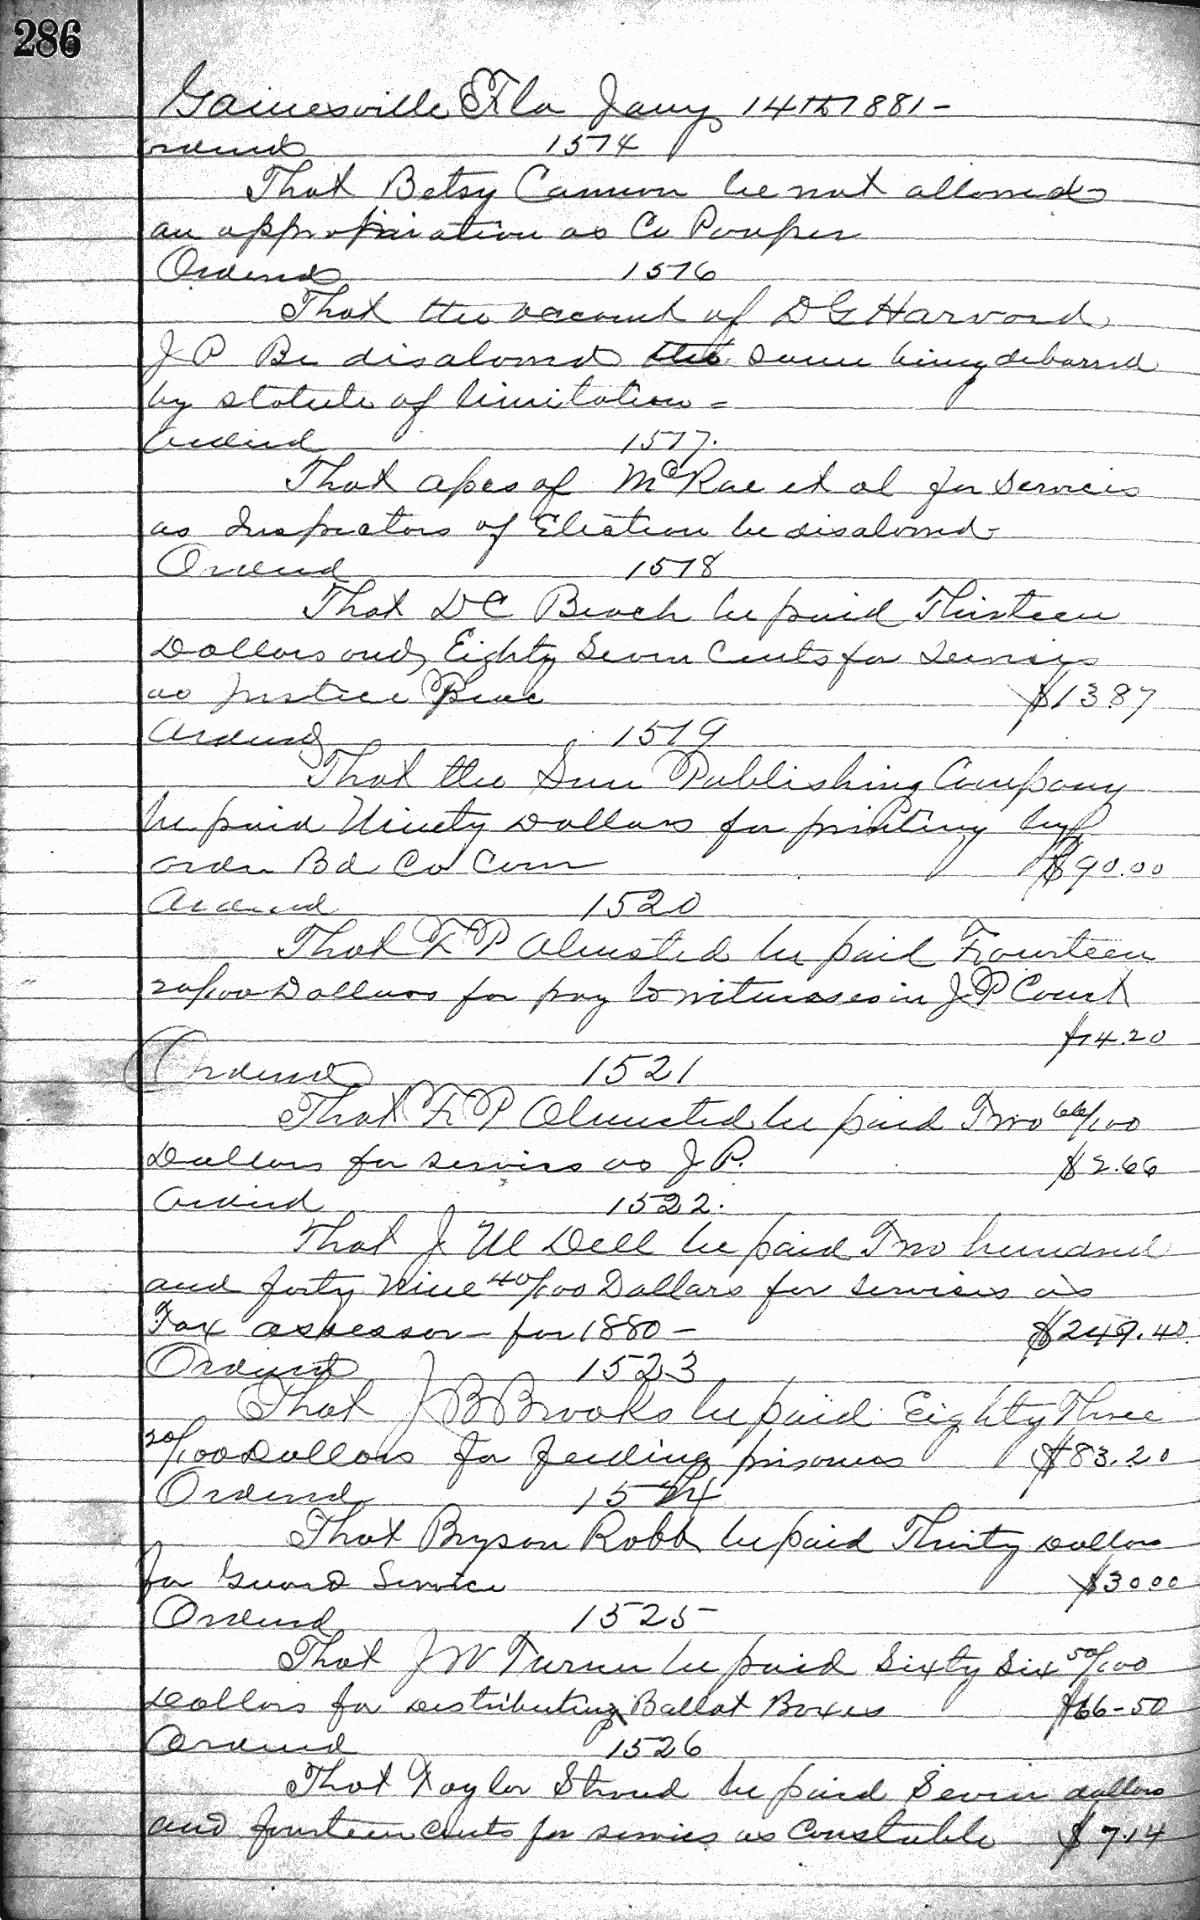 286
Gainesville Fla Jany 14th 1881 -
Ordered 1574
That Betsy Cannon be not allowed
an appropriation as Co Pauper
Ordered 1576
That the account of D G Harvord
J P Be disalowed the same being debarred
by statute of limitation =
Ordered 1577.
That apes of McRae et al for Services
as Inspectors of Election be disalowed -
Ordered 1578
That D C Beach be paid Thirteen
Dollars and Eighty Seven Cents for Services
as Justice Peace $13.87
Ordered 1519
That the Sun Publishing Company
be paid Ninety Dollars for printing by
order Bd Co Com $90.00
Ordered 1520
That F P Olmsted be paid Fourteen
20/100 Dollars for pay to witnesses in J.P Court
$14.20
Ordered 1521
That F P Olmsted be paid Two 66/100
Dollars for servics as J P. $2.66
Ordered 1522.
That J M Dell be paid Two hundred
and forty Nine 40/100 Dollars for services as
Tax assessor - for 1880 - $249.40
Ordered 1523
That J B Brooks be paid Eighty Three
20/100 Dollars for feeding prisoners $83.20
Ordered 1524
That Bryson Robb be paid Thirty Dollars
for Guard Service $30 00
Ordered 1525
That J W Turner be paid Sixty Six 50/100
Dollars for distributing Ballot Boxes $66-50
Ordered 1526
That Taylor Stroud be paid Seven dollars
and fourteen cents for servics as Constable $7.14